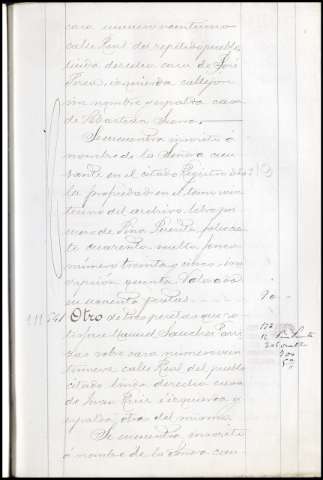 casa número veintiuno
calle Real del repetido pueblo
linda derecha casa de José
Perez, izquierda callejon
sin nombre y espalda casa
de Bautista Serna.
Se encuentra inscrito á
nombre de la Señora cau
sante en el citado Registro de
la propiedad en el tomo vein
tiuno del archivo, libro pri
mero de Pino Puente, folio cien
to cuarenta vuelto, finca
número treinta y cinco, ins
cripcion quinta. Valorado
en noventa pesetas.
90
Otro de tres pesetas que sa
tisface Manuel Sanchez Parri
zas sobre casa número vein
tinueve calle Real del pueblo
citado linda derecha casa
de Juan Ruiz é izquierda y
espalda otra del mismo.
Se encuentra inscrito
á nombre de la Señora cau